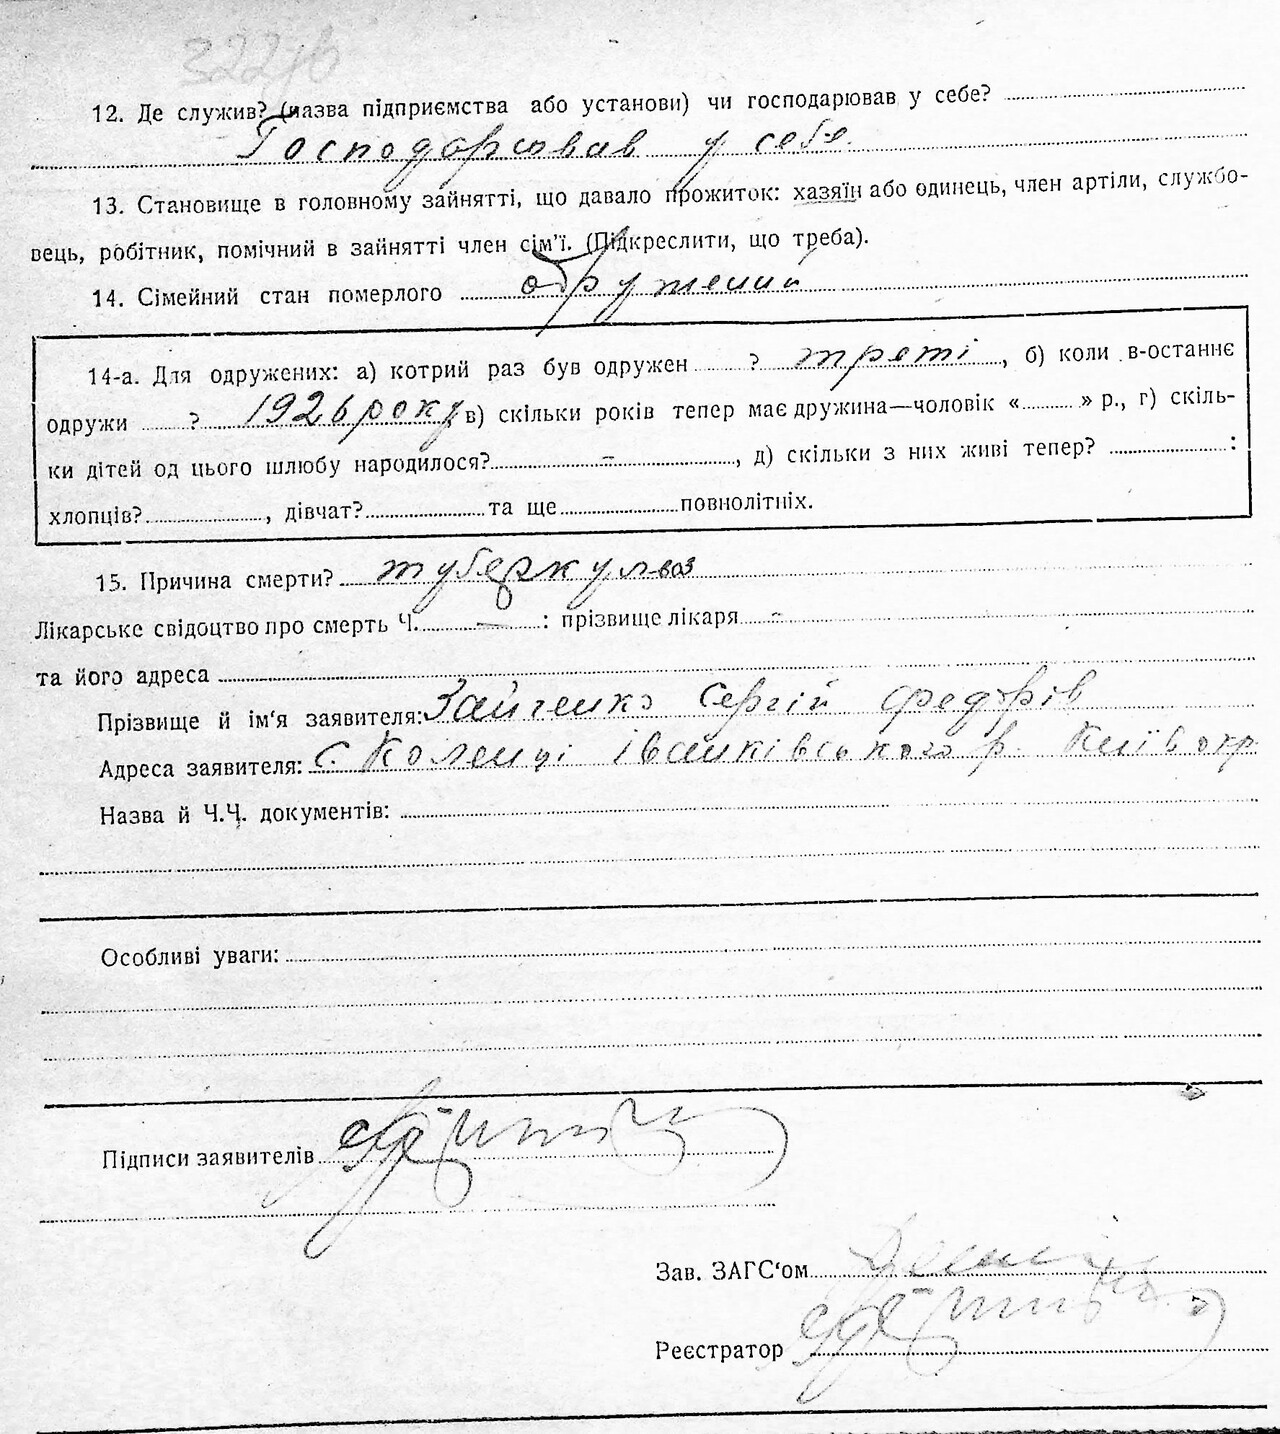 322зв
12. Де служив? (назва підприємства або установи) чи господарював у себе?
Господарював у себе.
13. Становище в головному зайнятті, що давало прожиток: хазяїн або одинець, член артіли, службо-
вець, робітник, помічний в зайнятті член сім'ї. (Підкреслити, що треба).
14. Сімейний стан померлого одружений
14-а. Для одружених: а) котрий раз був одружен ? треті, б) коли в-останнє
одружи ? 1926 року, в) скільки років тепер має дружина—чоловік « » р., г) скіль-
ки дітей од цього шлюбу народилося? – , д) скільки з них живі тепер? :
хлопців? , дівчат? та ще повнолітніх.
15. Причина смерти? туберкульоз
Лікарське свідоцтво про смерть Ч. — : прізвище лікаря -
та його адреса
Прізвище й ім'я заявителя: Зайченко Сергій Федорів
Адреса заявителя: с. Коленці Іванківського р. Київ окр
Назва й Ч.Ч. документів:
Особливі уваги:
Підписи заявителів
Зав. ЗАГС'ом
Реєстратор